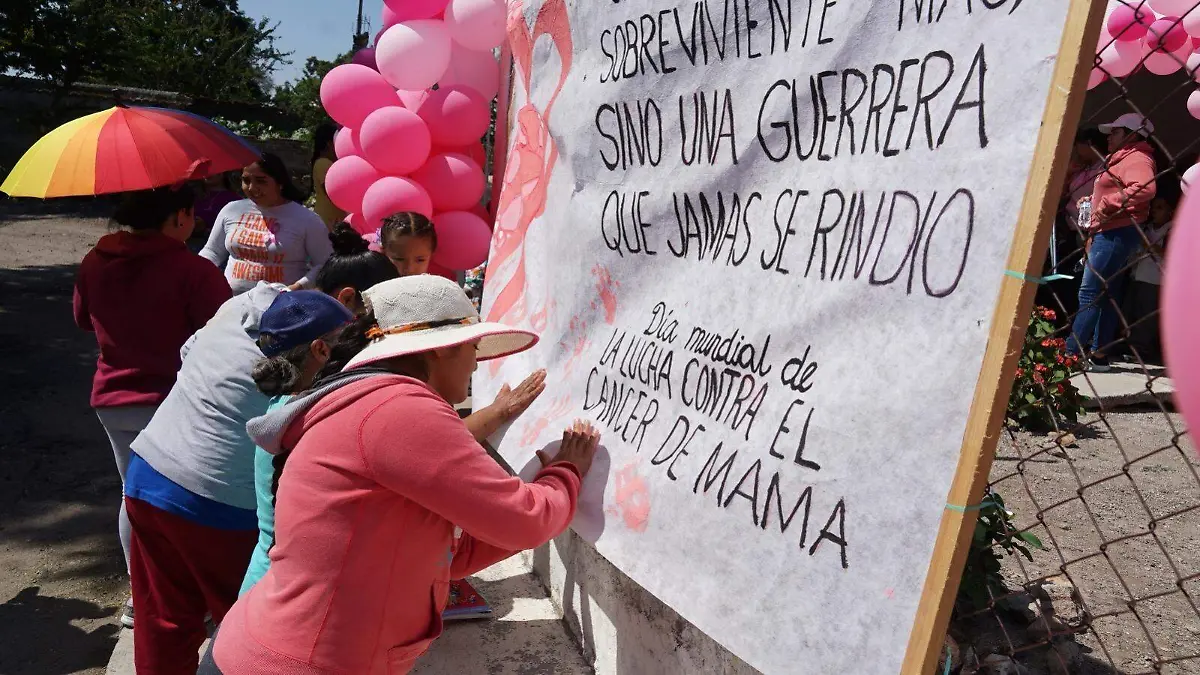 SOBREVIVIENTE MAS,
SINO UNA GUERRERA
QUE JAMAS SE RINDIO
Día mundial de
LA LUCHA CONTRA EL
CANCER DE MAMA
I CAN